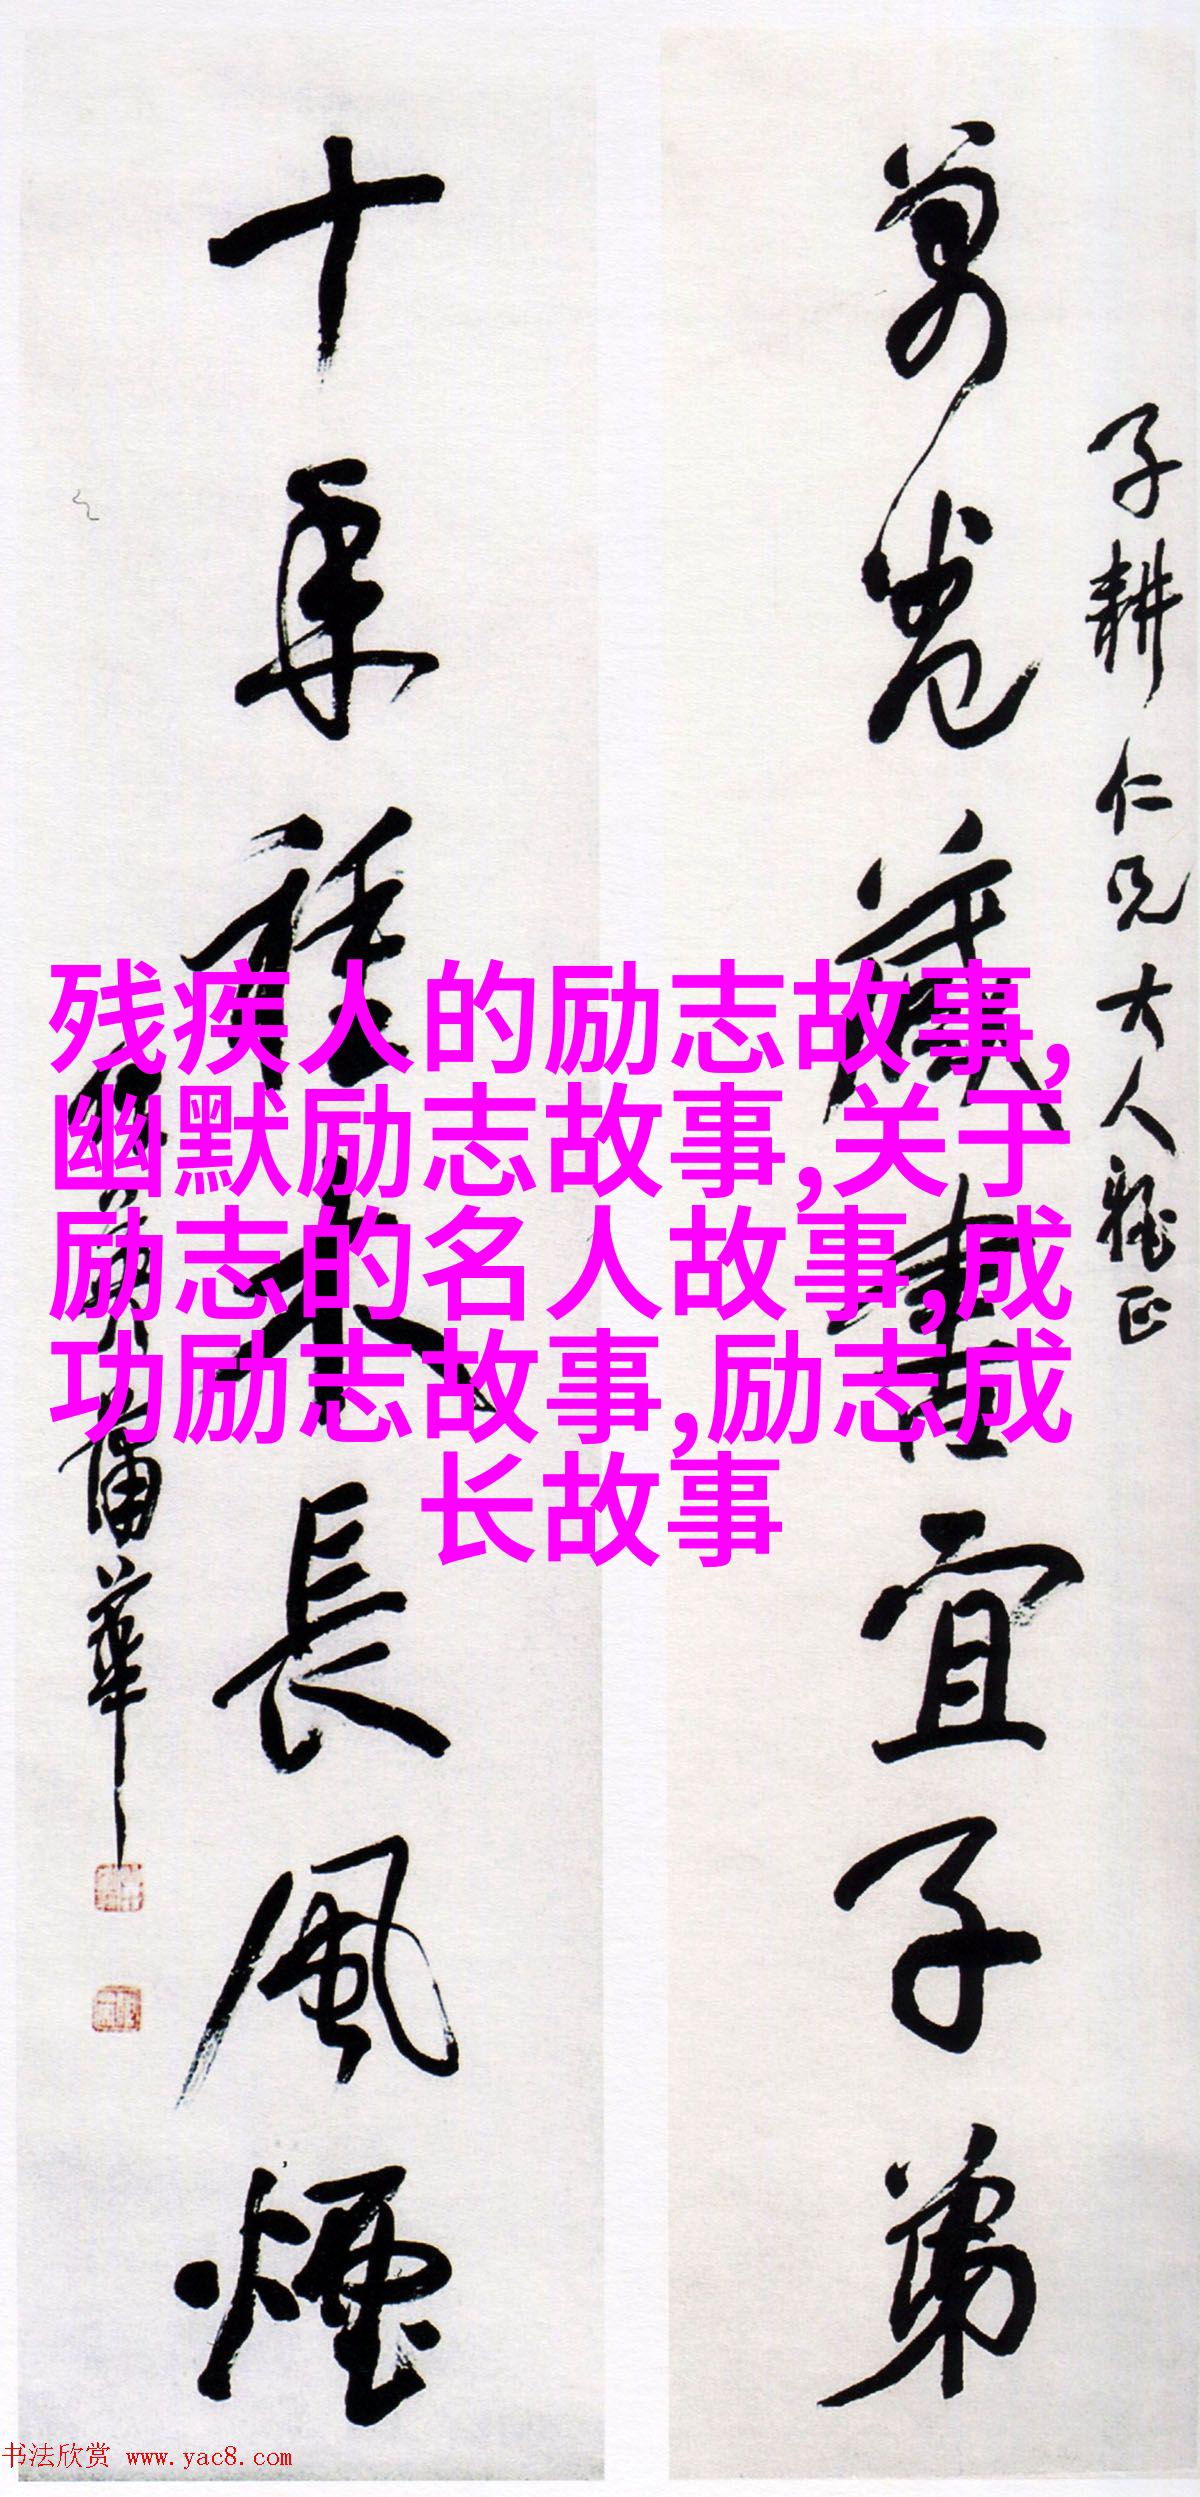 子耕仁兄大人雅正
萬卷藏書宜子弟
十年種木長風煙
蒲華
残疾人的励志故事,
幽默励志故事,关于
励志的名人故事,成
功励志故事,励志成
长故事
书法欣赏 www.yac8.com